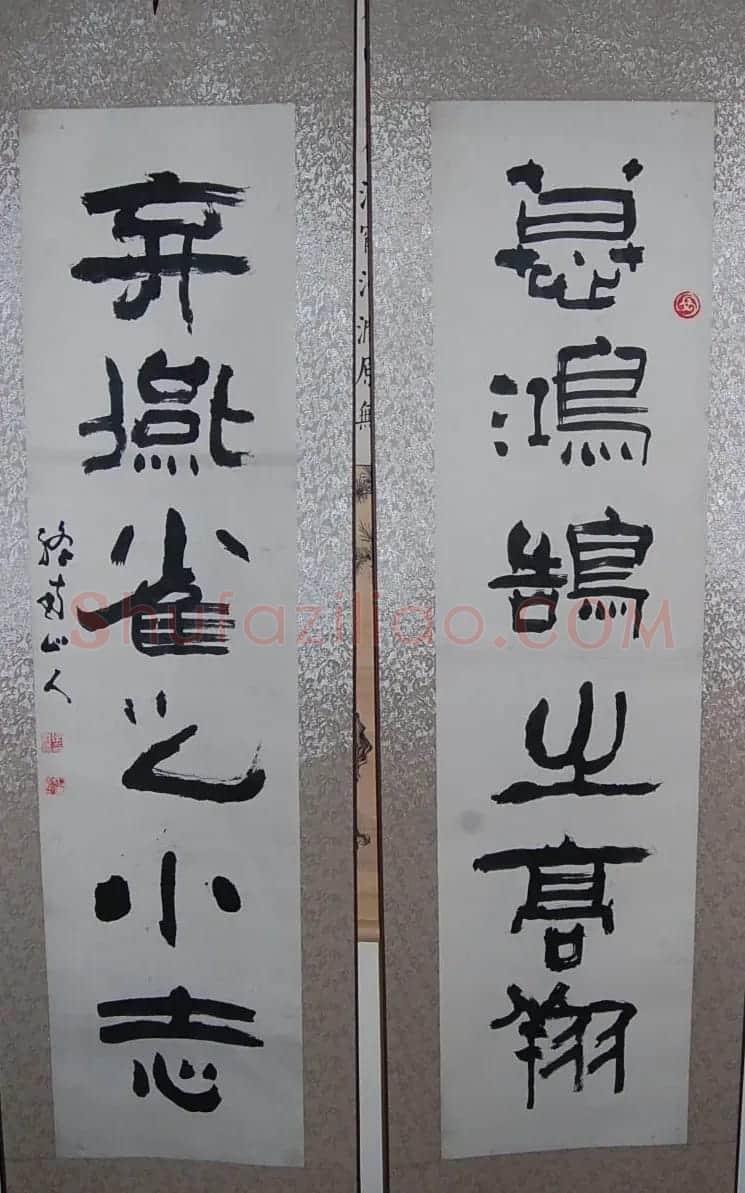 慕鴻鵠之高翔
弃燕雀之小志
山人
Shufaziliao.COM